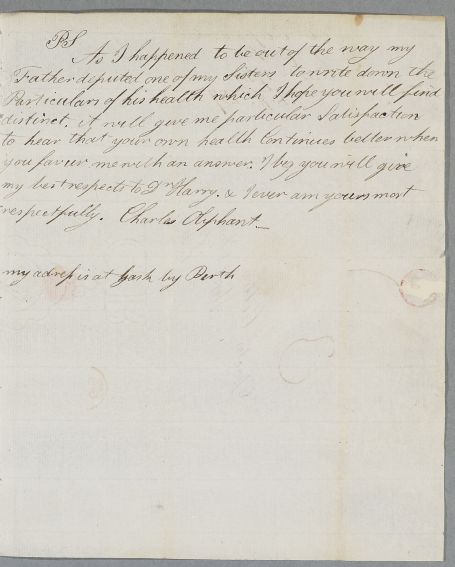 PS
As I happened to be out of the way my
Father deputed one of my Sisters to write down the
Particulars of his health which I hope you will find
distinct. it will give me particular Satisfaction
to hear that your own health Continues better when
you favour me with an answer. I beg you will give
my best respects to Dr Harry. & I ever am yours most
respectfully. Charles Oliphant
my adress is at Gask by Perth